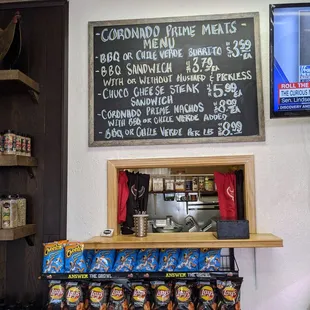 CORONADO PRIME MEATS
MENU
- BBQ OR CHILE VERDE BURRITO $3.99 EA
- BBQ SANDWICH $3.79 EA
WITH OR WITHOUT MUSTARD & PICKLESS
- CHUCO CHEESE STEAK $5.99 EA
SANDWICH
- CORONADO PRIME NACHOS $8.99 EA
WITH BBQ OR CHILE VERDE ADDED
- BBQ OR CHILE VERDE PER LB $8.99
ROLL THE
THE CURIOUS
Sen. Lindse
ANSWER THE GROWL
ANSWER THE GROWL